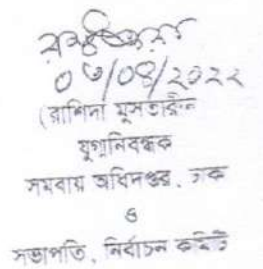 ০৬/০৪/২০২২
(রাশিদা মুসতারীন
যুগ্মনিবন্ধক
সমবায় অধিদপ্তর, ঢাকা
ও
সভাপতি, নির্বাচন কমিটি